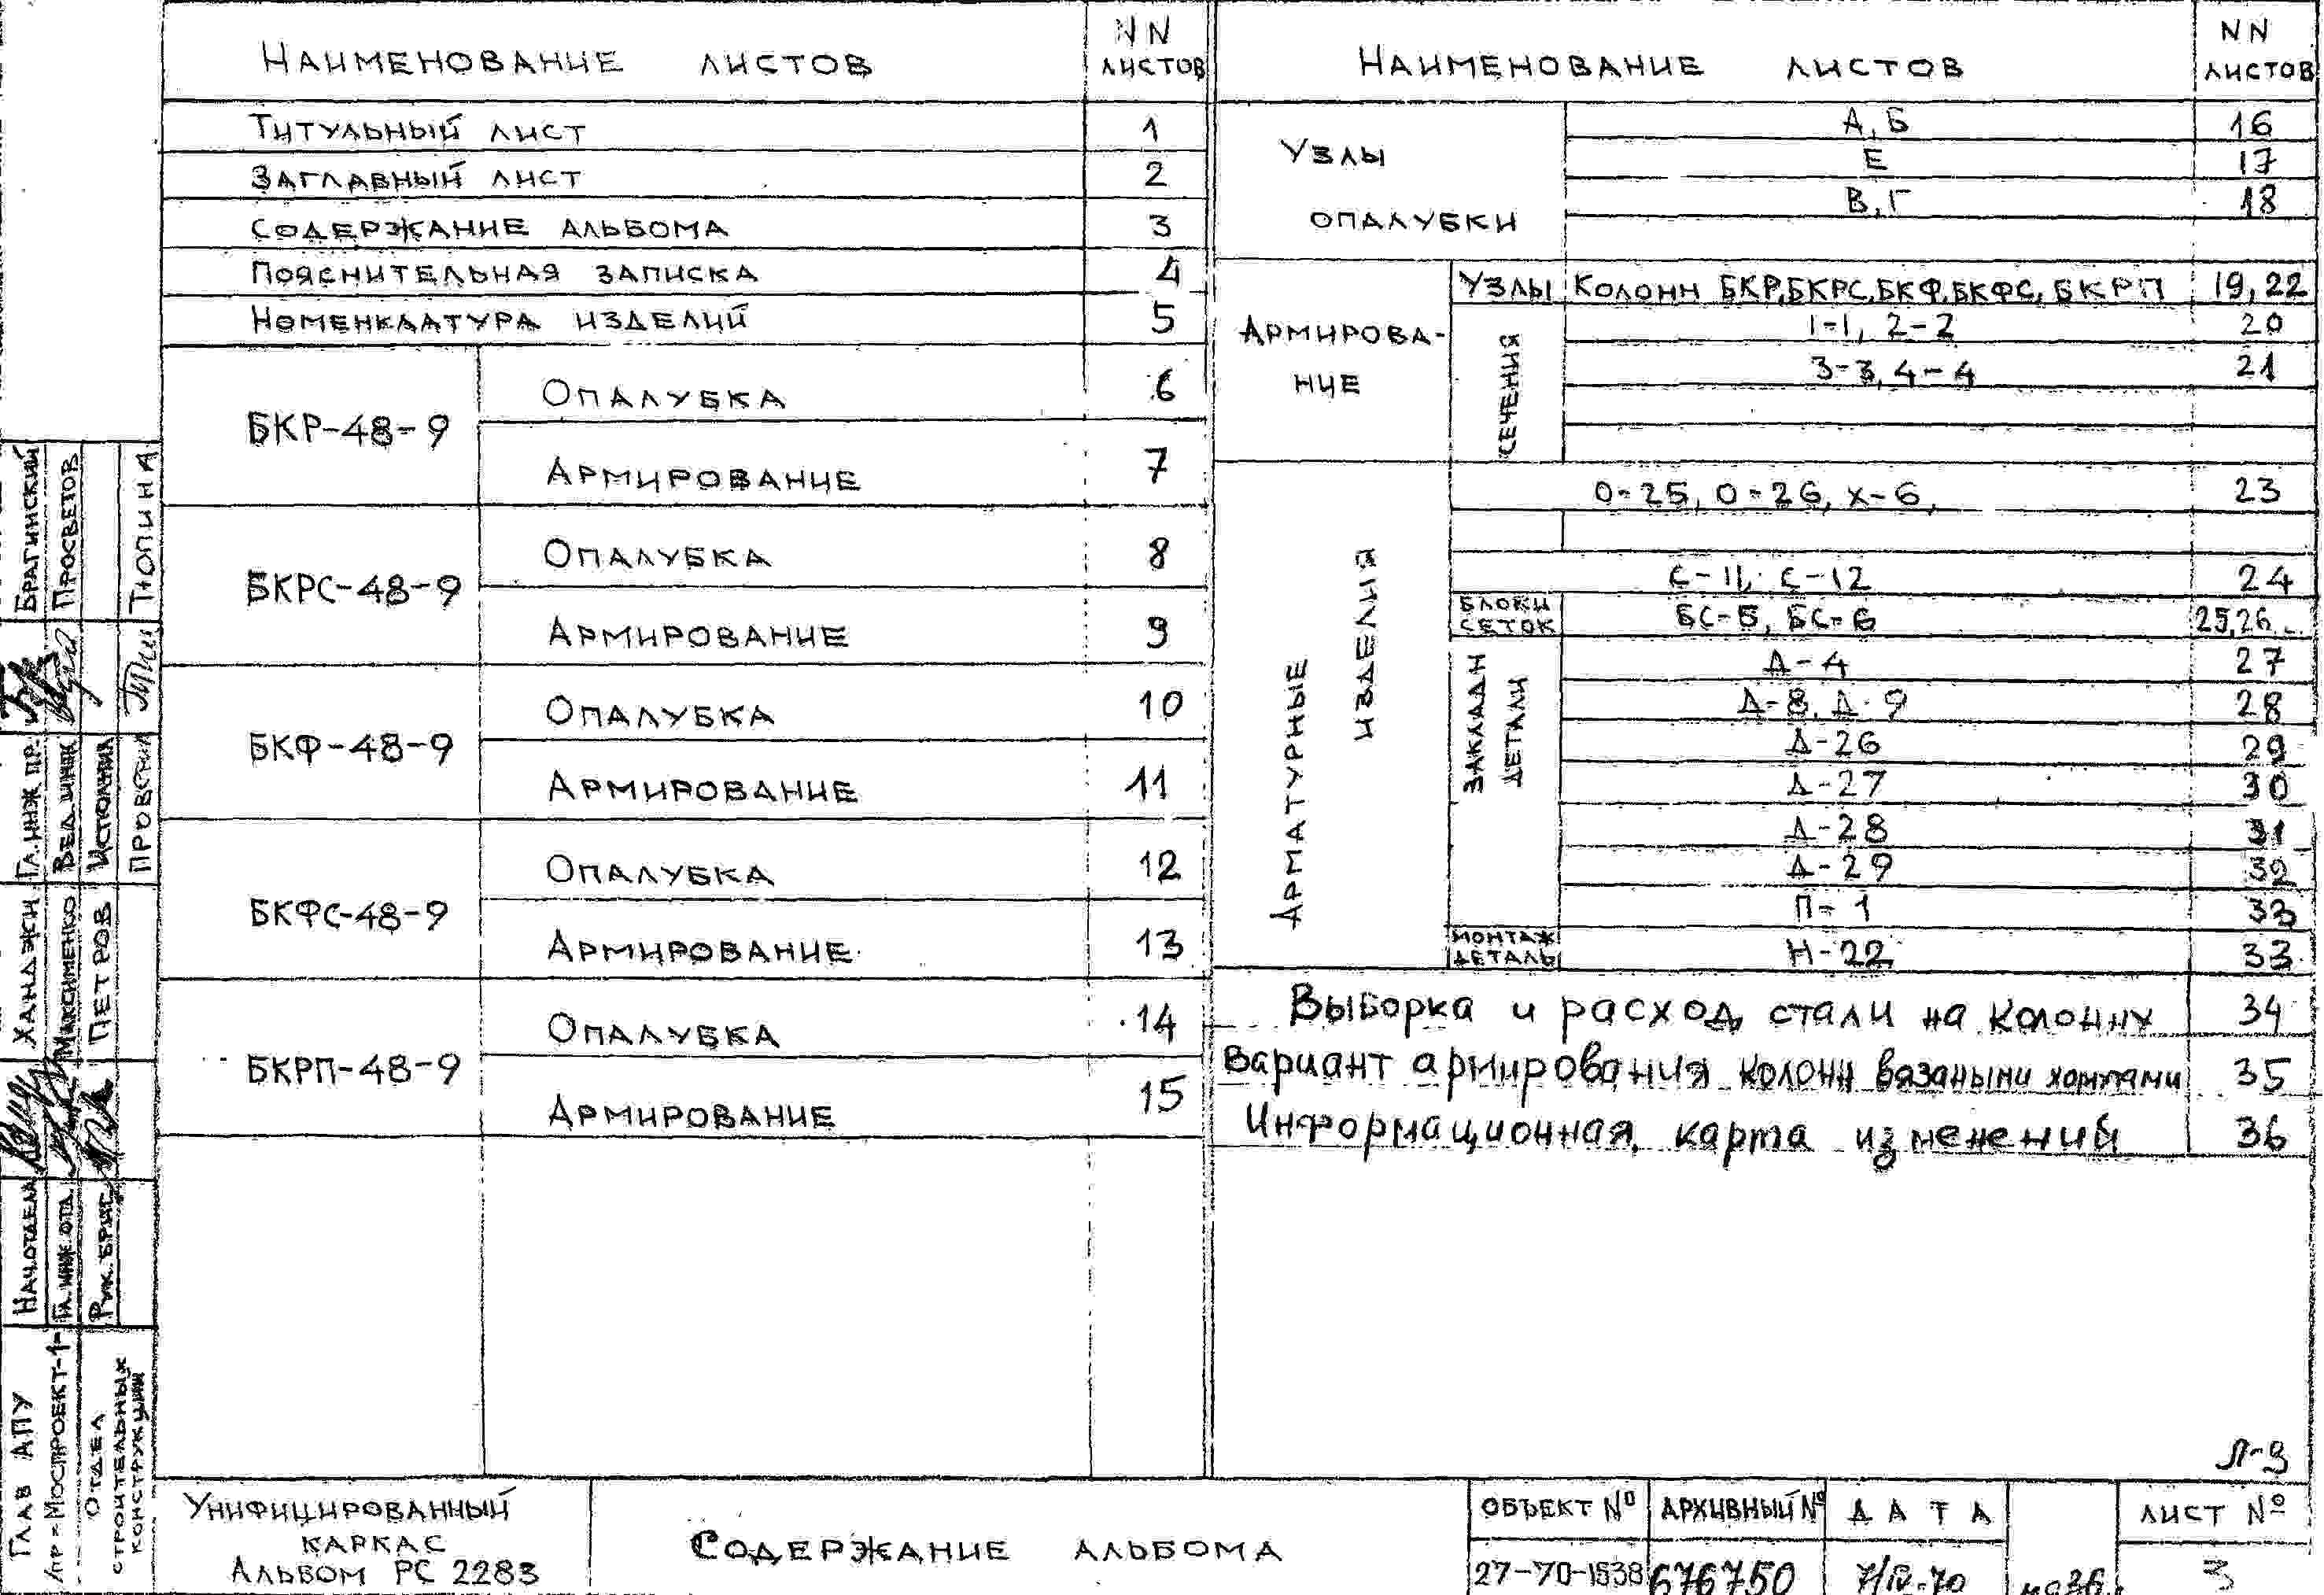 Наименование листов
NN листов
Титульный лист 1
Заглавный лист 2
Содержание альбома 3
Пояснительная записка 4
Номенклатура изделий 5
БКР-48-9
Опалубка 6
Армирование 7
БКРС-48-9
Опалубка 8
Армирование 9
БКФ-48-9
Опалубка 10
Армирование 11
БКФС-48-9
Опалубка 12
Армирование 13
БКРП-48-9
Опалубка 14
Армирование 15
Наименование листов
NN листов
Узлы опалубки
А, Б 16
Е 17
В, Г 18
Армирова-
ние
Узлы Колонн БКР, БКРС, БКФ, БКФС, БКРП 19, 22
Сечения
1-1, 2-2 20
3-3, 4-4 21
Арматурные изделия
О-25, О-26, Х-6, 23
С-11, С-12 24
Блоки сеток
БС-5, БС-6 25,26
Закладн детали
Д-4 27
Д-8, Д-9 28
Д-26 29
Д-27 30
Д-28 31
Д-29 32
П-1 33
Монтаж деталь
Н-22 33
Выборка и расход стали на колонну 34
Вариант армирования колонн вязаными хомутами 35
Информационная карта изменений 36
Л-3
Глав АПУ
Упр-Моспроект-1-
Отдел
строительных
конструкций
Нач.отдела
Ханджи
Гл. инж. отд.
Максименко
Рук. бриг.
Петров
Гл. инж пр.
Брагинский
Вед. инж
Просветов
Исполнил
Проверил
Тюпина
Унифицированный
каркас
Альбом РС 2283
Содержание альбома
Объект № 27-70-1538
Архивный № 676750
Дата
Лист № 3